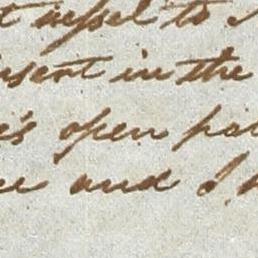 t vessel to
nsent in the
's open pa
and I